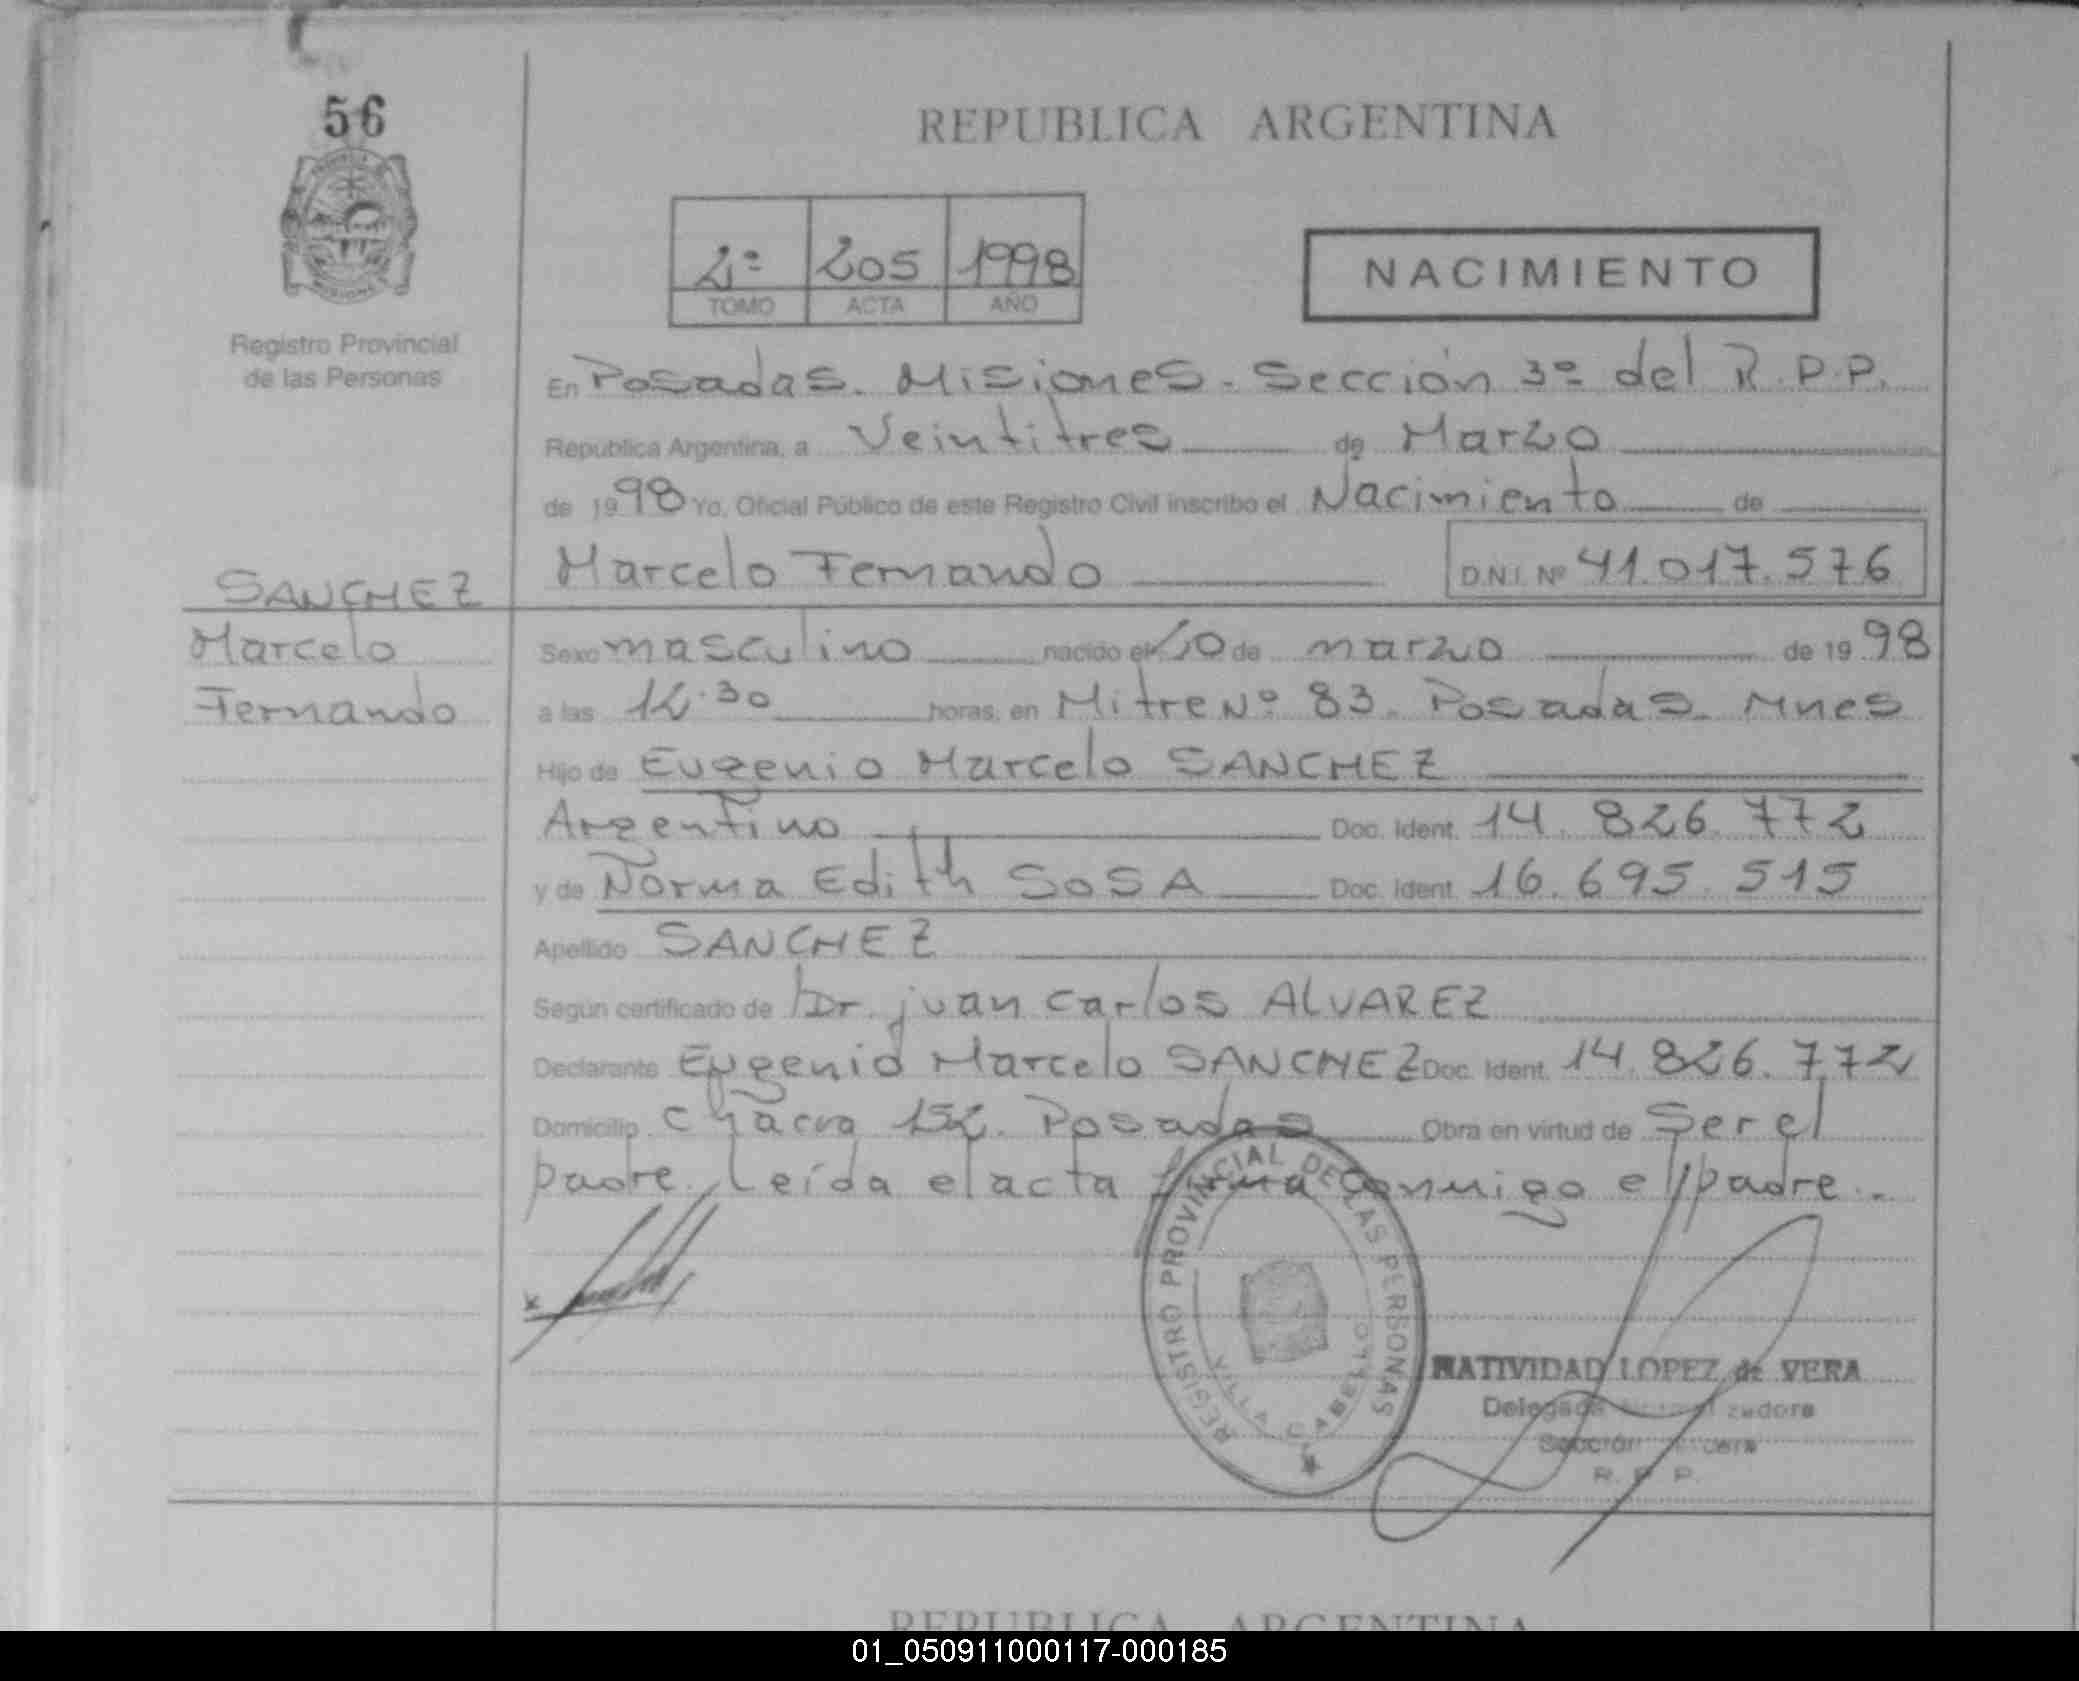 56
REPUBLICA ARGENTINA
2º 205 1998
TOMO ACTA AÑO
NACIMIENTO
Registro Provincial
de las Personas
En Posadas. Misiones. Sección 3º del R.P.P.
Republica Argentina, a Veintitres de Marzo
de 1998 Yo, Oficial Público de este Registro Civil inscribo el Nacimiento de
Marcelo Fernando D.N.I. Nº 41.017.576
SANCHEZ
Marcelo
Fernando
Sexo masculino nacido el 20 de marzo de 1998
a las 12.30 horas, en Mitre Nº 83. Posadas. Mnes
Hijo de Eugenio Marcelo SANCHEZ
Argentino Doc. Ident. 14.826.772
y de Norma Edith SOSA Doc. Ident. 16.695.515
Apellido SANCHEZ
Según certificado de Dr. juan Carlos ALVAREZ
Declarante Eugenio Marcelo SANCHEZ Doc. Ident. 14.826.772
Domicilio Chacra 152. Posadas Obra en virtud de Ser el
padre. Leída el acta firma conmigo el padre.-
REGISTRO PROVINCIAL DE LAS PERSONAS
VILLA CABELLO
NATIVIDAD LOPEZ de VERA
Delegada
Sección Tercera
R. P. P.
REPUBLICA ARGENTINA
01_050911000117-000185